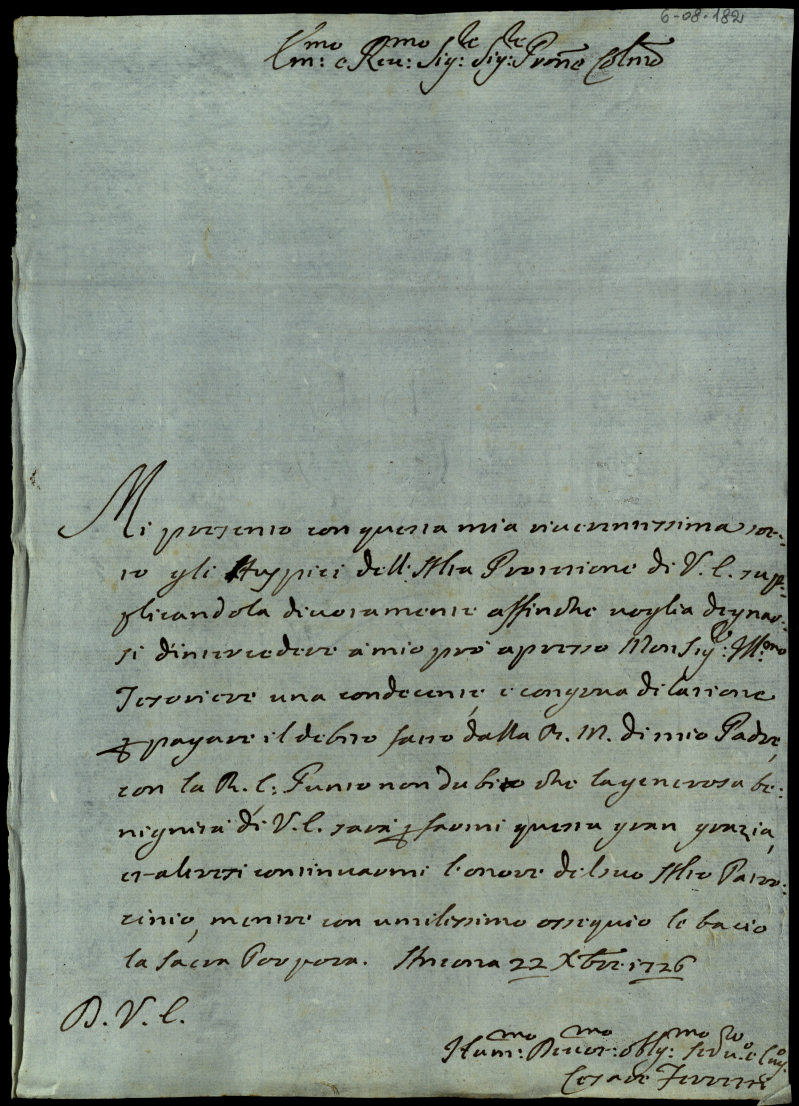 6-08-182
Em:mo e Rev:mo Sig:re Sig:re Pron̄e Colmo
Mi presento con questa mia riverentissima sot-
to gli Auspici dell'Alta Protezione di V. E. sup-
plicandola divotamente affinche voglia degnar-
si d'intercedere a mio prò apresso Monsig:r Ill:mo
Tesoriere una condecente, e congrua dilazione
p pagare il debito fatto dalla B. M. di mio Padre,
con la R. C: Punto non dubito che la generosa be-
nignità di V. E. sarà p farmi questa gran grazia,
et altresi continuarmi l'onore del suo Alto Patro-
cinio, mentre con umilissimo ossequio le bacio
la Sacra Porpora. Ancona 22 Xbre 1726
D. V. E.
Hum:mo Devot:mo Oblig:mo
Cesare Ferretti